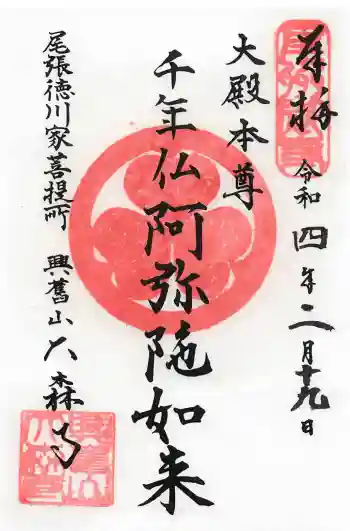 奉拝
令和四年二月十九日
大殿本尊
千年仏阿弥陀如来
尾張徳川家菩提所 興舊山大森寺